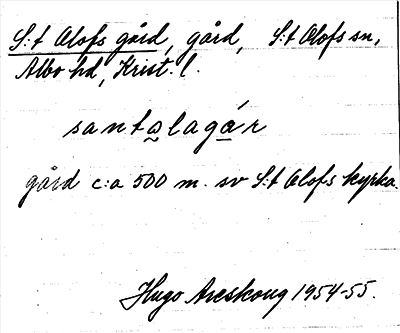 S:t Olofs gård, gård, S:t Olofs sn,
Albo hd, Krist. l.
santa̰laga̲r
gård c:a 500 m. sv S:t Olofs kyrka.
Hugo Areskoug 1954-55.